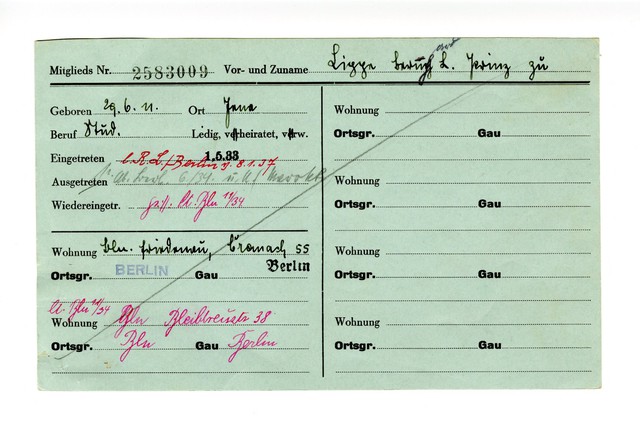 Mitglieds Nr. 2583009 Vor- und Zuname Lippe Prinz zu
Geboren 29.6.11. Ort Jena
Beruf Stud. Ledig, verheiratet, verw.
Eingetreten 1.5.33
Berlin 8.1.37
Ausgetreten 6/34. u.
Wiedereingetr. Bln 11/34
Wohnung Bln. Friedenau, Cranach 55
Ortsgr. BERLIN Gau Berlin
Bln 11/34
Wohnung Bln Bleibtreustr 38
Ortsgr. Bln Gau Berlin
Wohnung
Ortsgr. Gau
Wohnung
Ortsgr. Gau
Wohnung
Ortsgr. Gau
Wohnung
Ortsgr. Gau